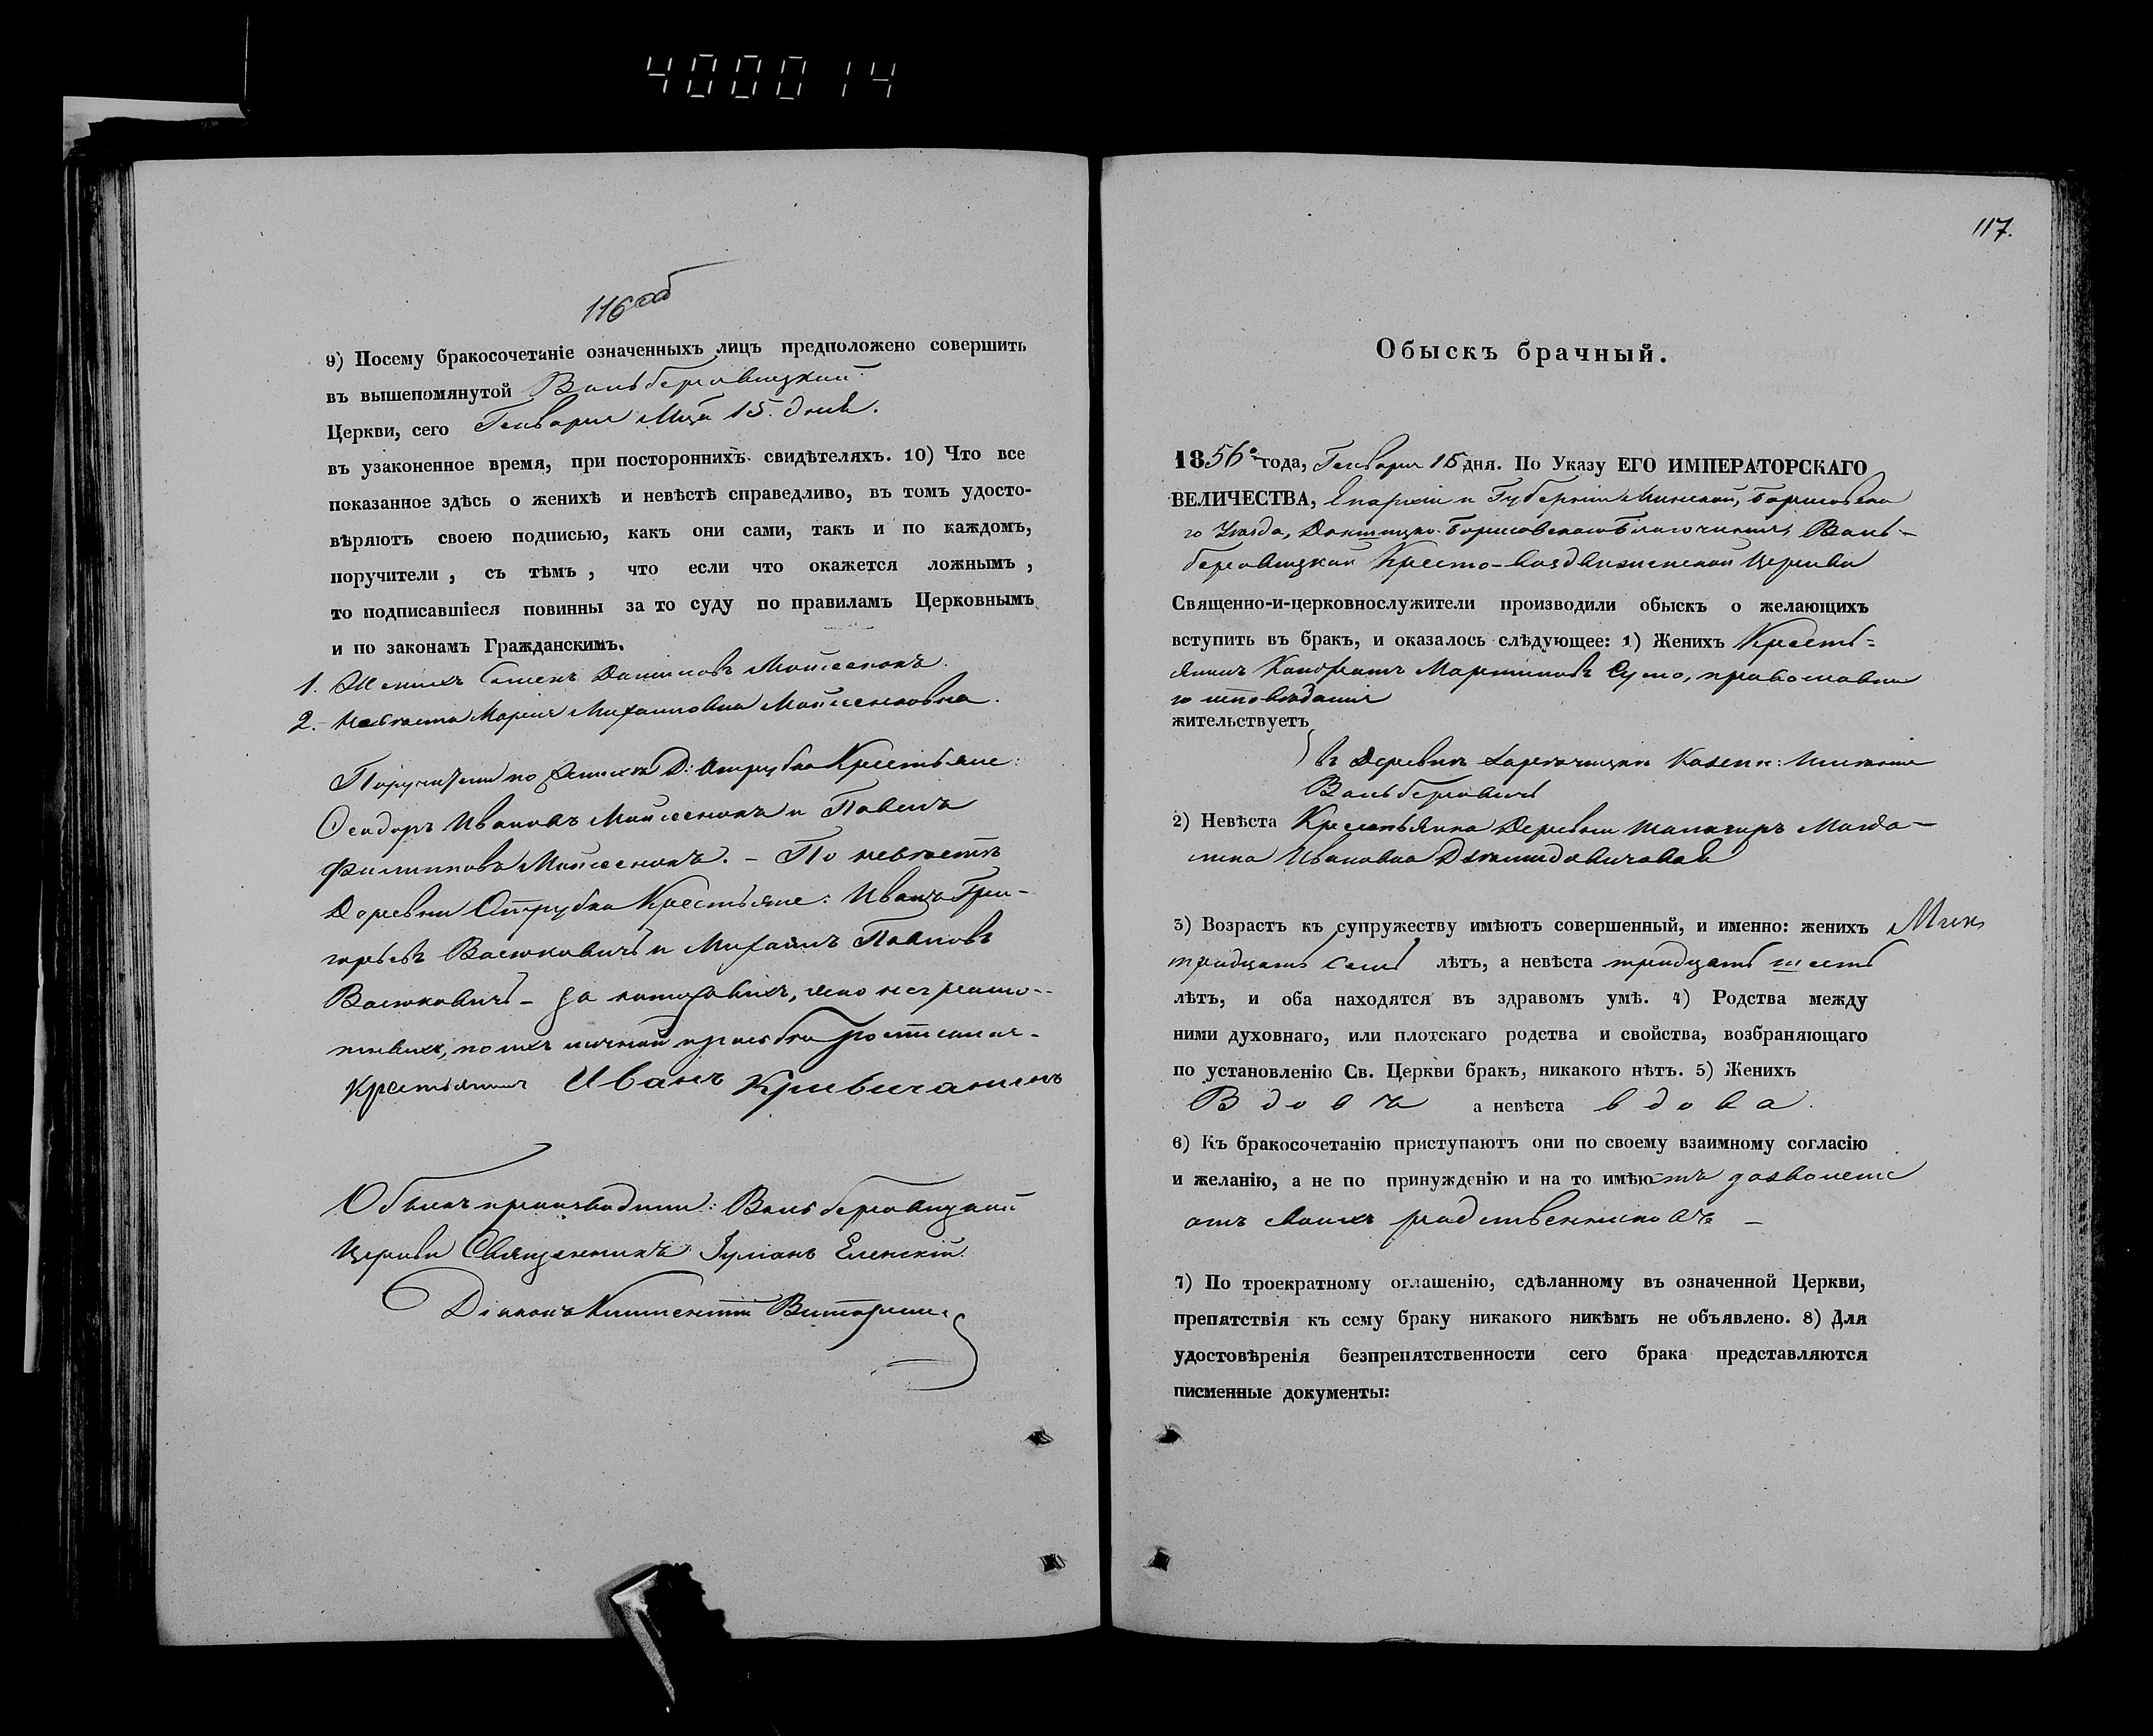 4000014
116 об
9) Посему бракосочетаніе означенныхъ лицъ предположено совершить
въ вышепомянутой Вольберовицкой
Церкви, сего Генваря Мца 15. дня.
въ узаконенное время, при постороннихъ свидѣтеляхъ. 10) Что все
показанное здѣсь о женихѣ и невѣстѣ справедливо, въ томъ удосто-
вѣряютъ своею подписью, какъ они сами, такъ и по каждомъ,
поручители, съ тѣмъ, что если что окажется ложнымъ,
то подписавшіеся повинны за то суду по правиламъ Церковнымъ
и по законамъ Гражданскимъ.
1. Женихъ Семенъ Даниловъ Мойсеенокъ.
2. Невѣста Марія Михайловна Мойсеенковна.
Поручители по женихѣ Д: Отрубка Крестьяне:
Ѳеодоръ Ивановъ Мойсеенокъ и Павелъ
Филипповъ Мойсеенокъ. – По невѣстѣ
Деревни Отрубка Крестьяне: Иванъ Гри-
горьевъ Васюковичъ и Михаилъ Павловъ
Васюковичъ – За которыхъ, яко неграмо-
тныхъ, по ихъ личной прозьбѣ росписался
Крестьянинъ Иванъ Кривичанинъ
Обыскъ производили: Вольберовицкой
Церкви Священникъ Іуліанъ Еленскій.
Діаконъ Викторинъ
117.
Обыскъ брачный.
1856го года, Генваря 15 дня. По Указу ЕГО ИМПЕРАТОРСКАГО
ВЕЛИЧЕСТВА, Епархіи и Губерніи Минской, Борисовска
го Уѣзда, Докшицко-Борисовскаго Благочинія, Воль-
беровицкой Кресто-воздвиженской Церкви
Священно-и-церковнослужители производили обыскъ о желающихъ
вступить въ бракъ, и оказалось слѣдующее: 1) Женихъ Кресть=
янинъ Кондратъ Мартиновъ православна
го исповѣданія
жительствуетъ
въ Деревнѣ Казенн: Имѣнія
Вольберовичъ
2) Невѣста Крестьянка Деревни Магда-
лина Ивановна Демидовичова
3) Возрастъ къ супружеству имѣютъ совершенный, и именно: женихъ
тридцать семь лѣтъ, а невѣста тридцать шесть
лѣтъ, и оба находятся въ здравомъ умѣ. 4) Родства между
ними духовнаго, или плотскаго родства и свойства, возбраняющаго
по установленію Св. Церкви бракъ, никакого нѣтъ. 5) Женихъ
Вдовъ а невѣста вдова.
6) Къ бракосочетанію приступаютъ они по своему взаимному согласію
и желанію, а не по принужденію и на то имѣютъ дозволеніе
отъ своихъ родственниковъ –
7) По троекратному оглашенію, сдѣланному въ означенной Церкви,
препятствія къ сему браку никакого никѣмъ не объявлено. 8) Для
удостовѣренія безпрепятственности сего брака представляются
писменные документы: